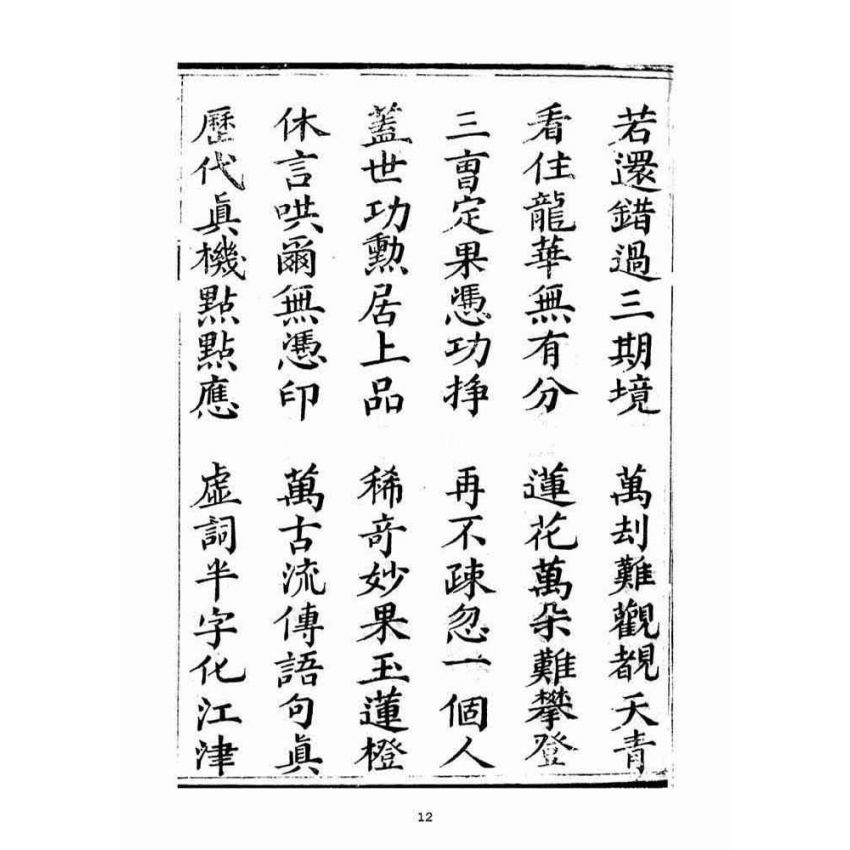 若還錯過三期境 萬刦難觀覩天青
看住龍華無有分 蓮花萬朶難攀登
三曺定果憑功掙 再不疎忽一個人
蓋世功勲居上品 稀奇妙果玉蓮橙
休言哄爾無憑印 萬古流傳語句眞
歷代眞機點點應 虛詞半字化江津
12